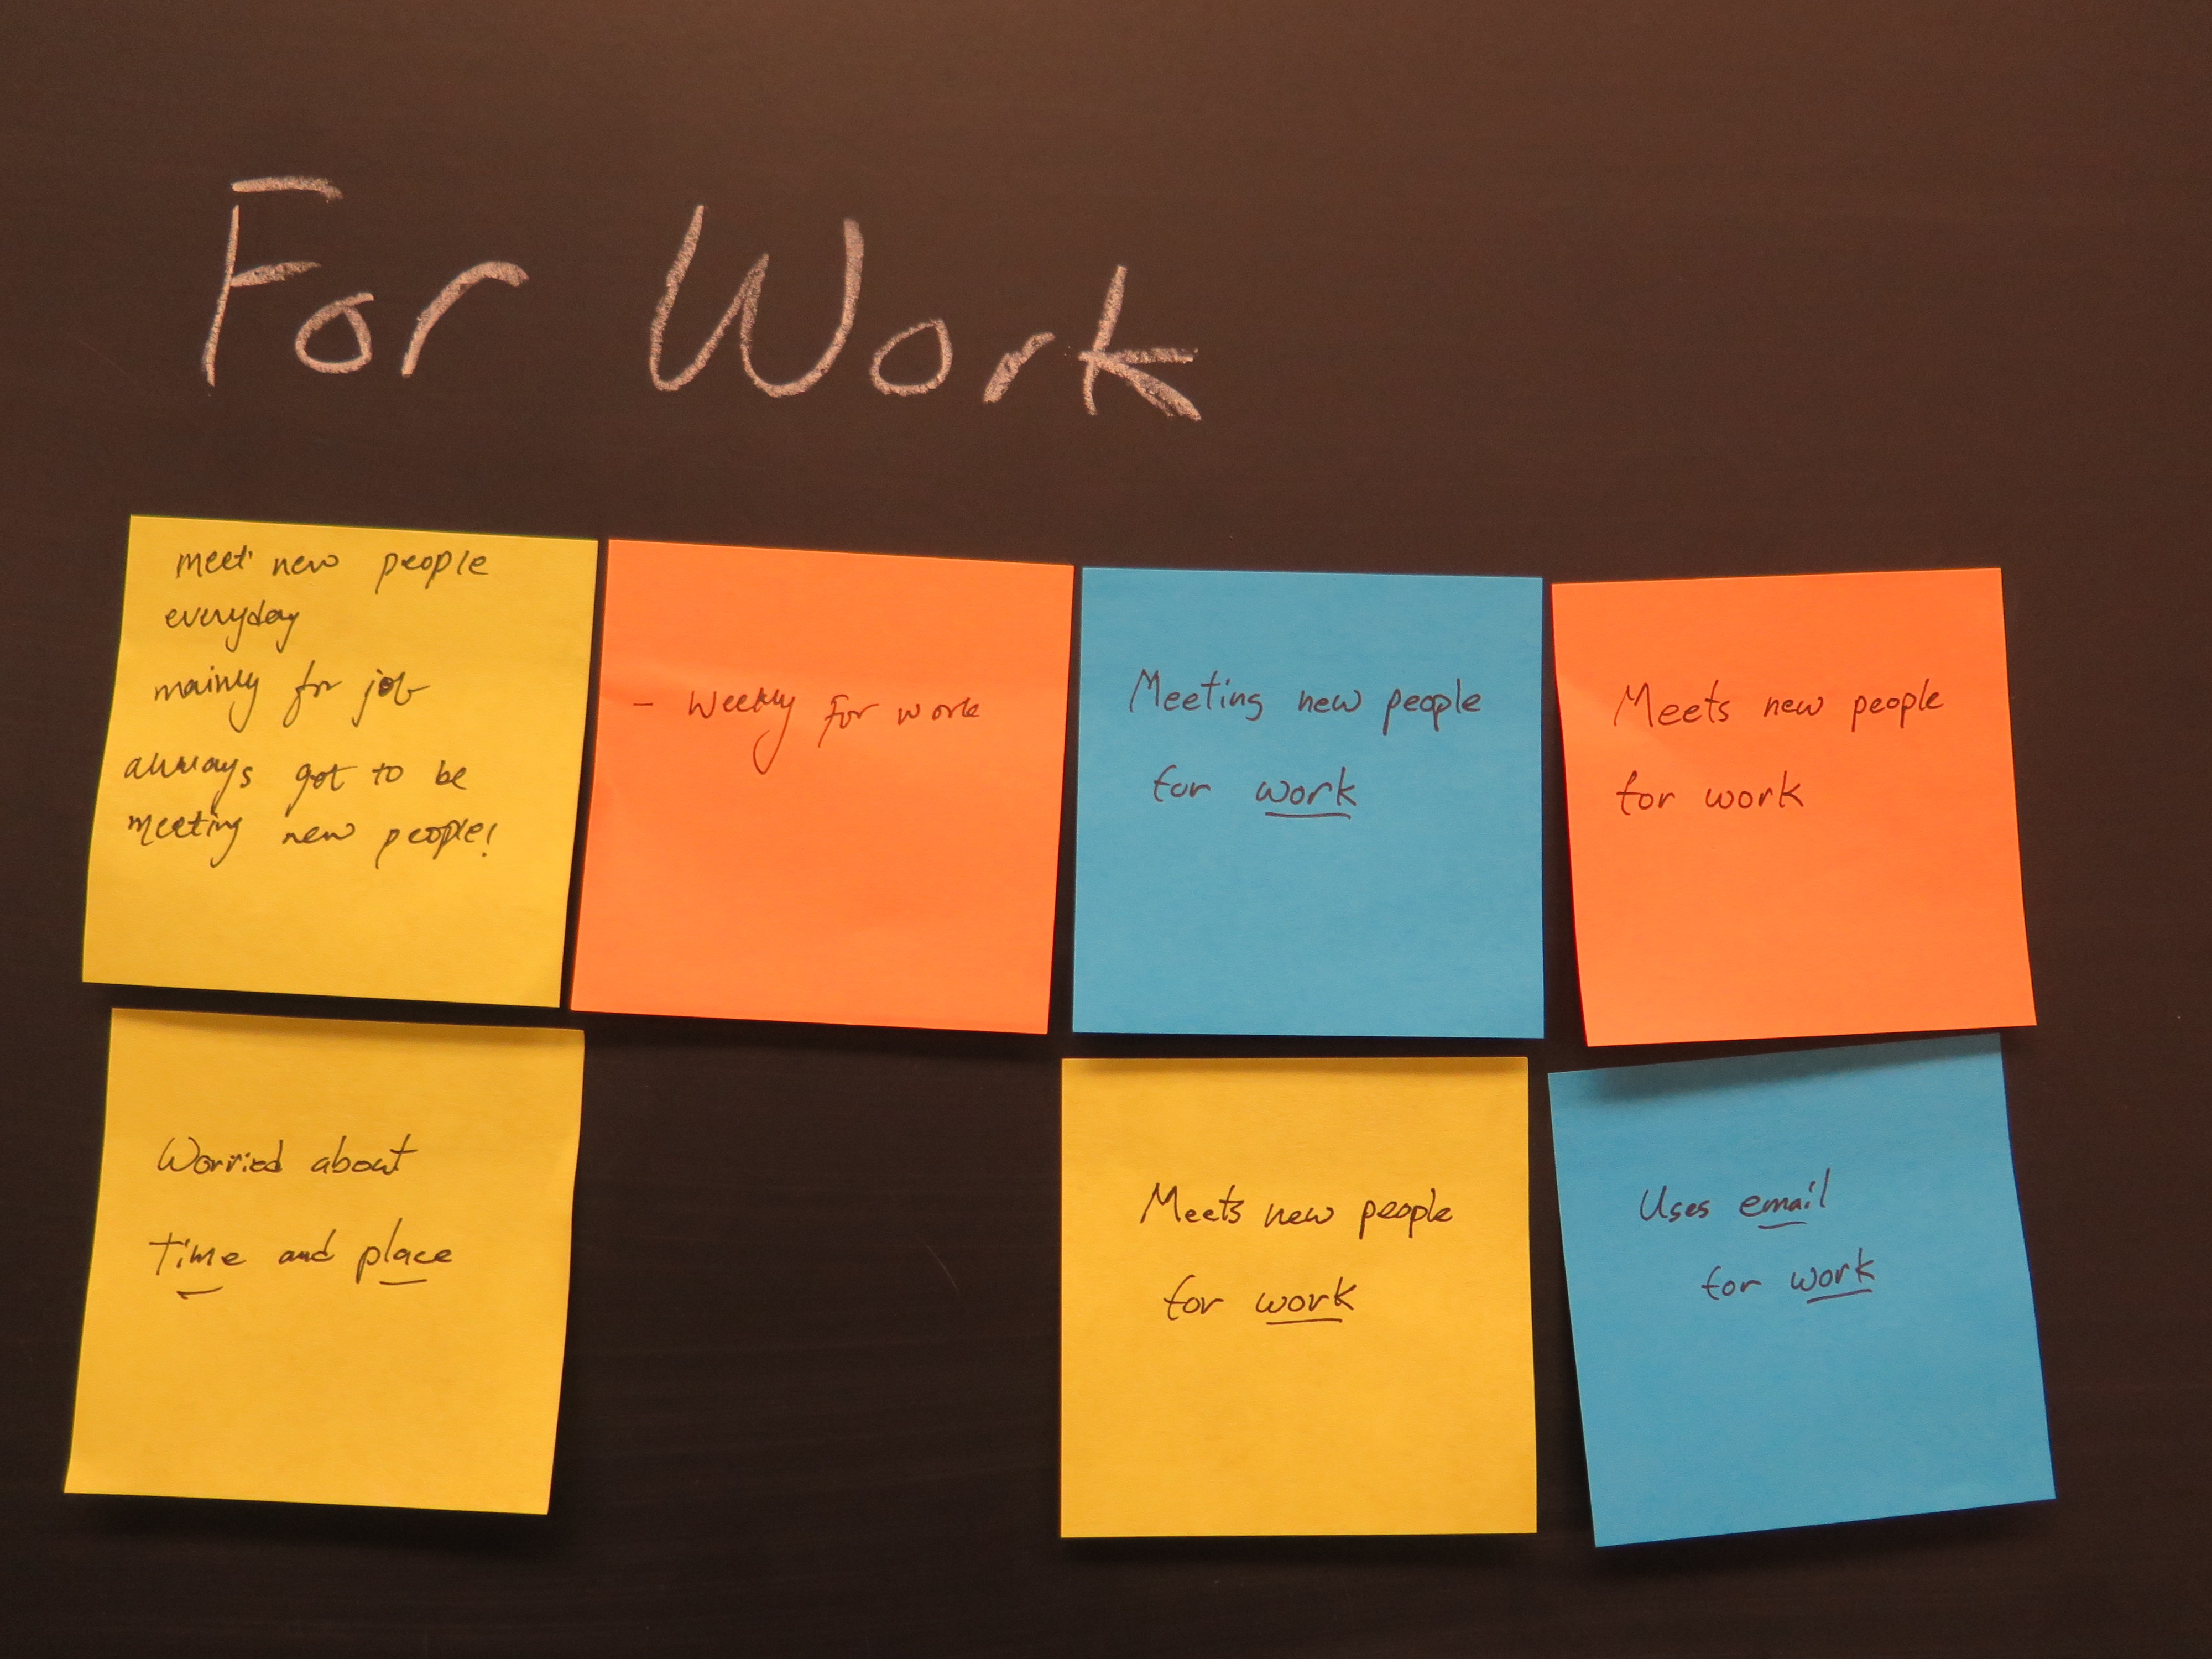 For Work
meet new people
everyday
mainly for job
always got to be
meeting new people!
- Weekly for work
Meeting new people
for work
Meets new people
for work
Worried about
time and place
Meets new people
for work
Uses email
for work